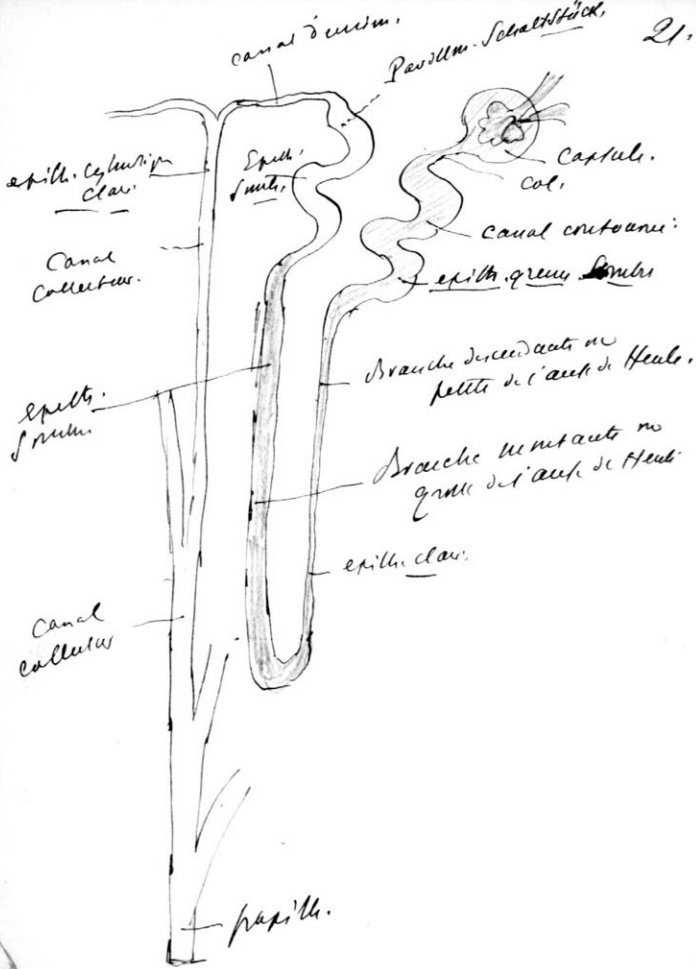 21.
canal d'union.
Pavillon-Schaltstück.
epith. cylindriq
clair.
Epith.
Sombre.
capsule.
col.
canal contourné:
epith. grenu Sombre
Canal
Collecteur.
Branche descendante ou
petite de l'anse de Henle.
epith.
Sombre.
Branche montante ou
grosse de l'anse de Henle
epith. clair.
Canal
collecteur
papill.